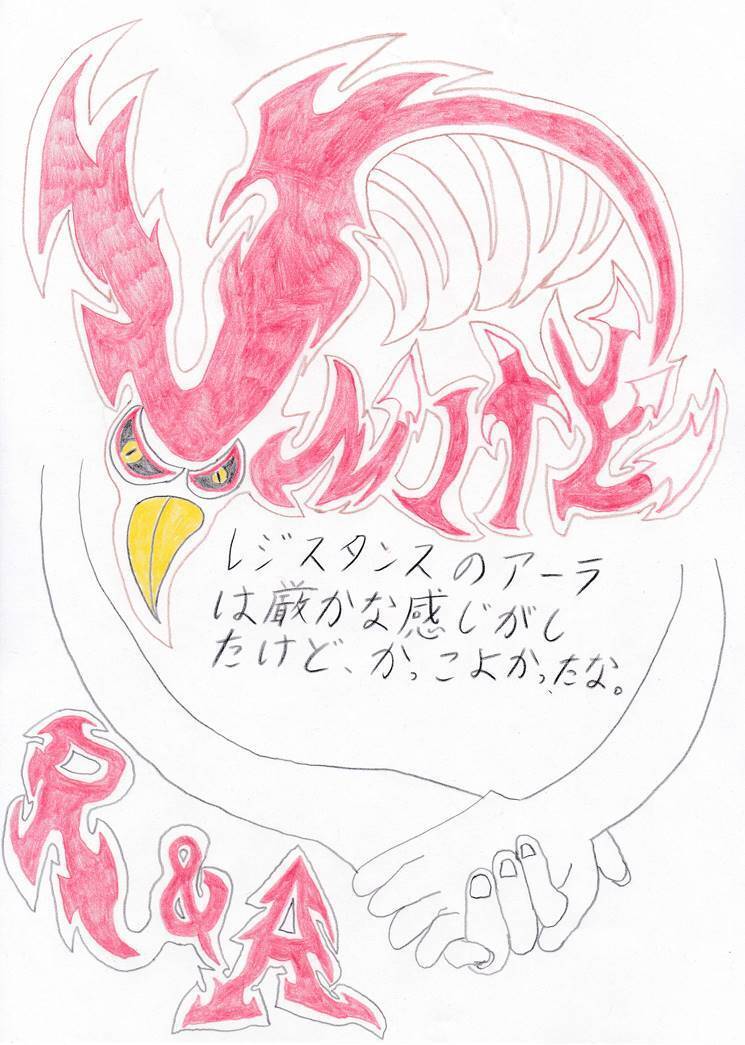 UNITY
レジスタンスのアーラ
は厳かな感じがし
たけど、かっこよかったな。
R&A